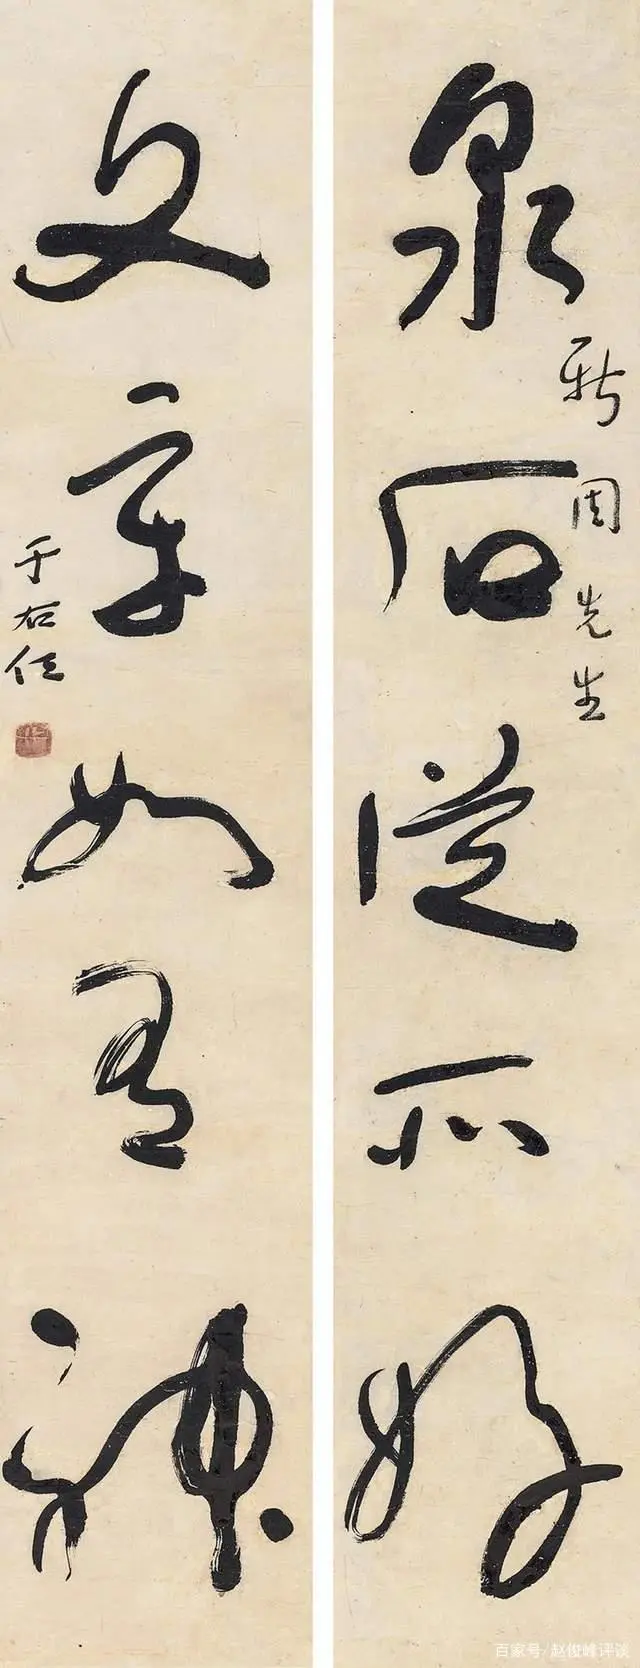 泉石從所好
周先生
文章如有神
于右任
百家号/赵俊峰评谈